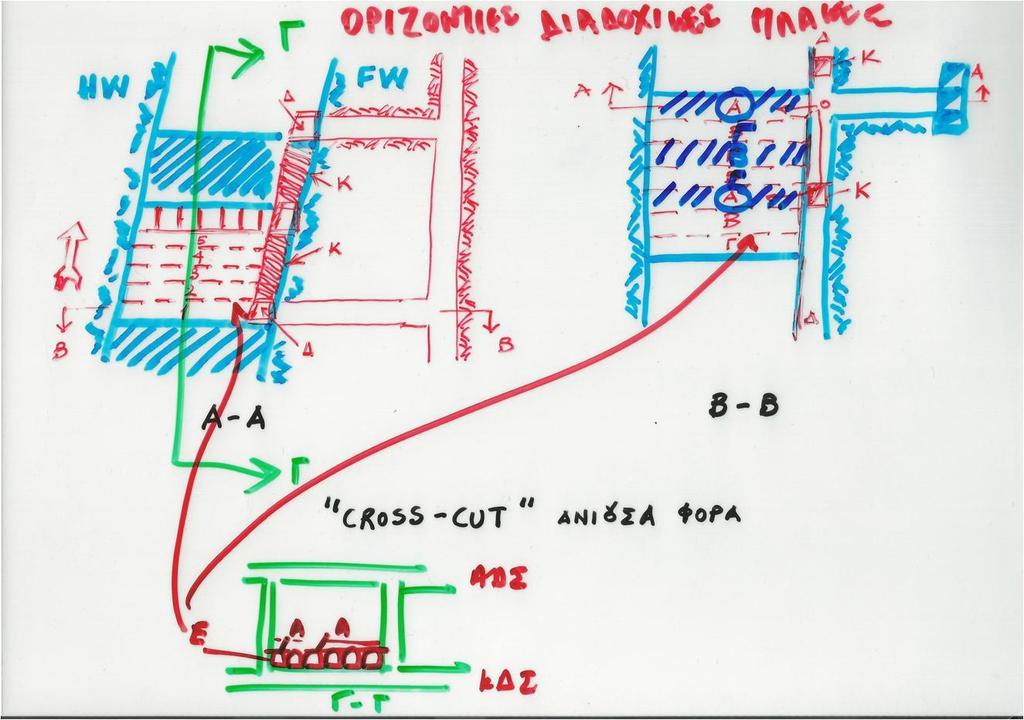 ΟΡΙΖΟΝΤΙΕΣ ΔΙΑΔΟΧΙΚΕΣ ΠΛΑΚΕΣ
Γ
HW
FW
Δ
K
K
5
4
3
2
Δ
B
B
A-A
Γ
Δ
K
A
A
A
A
K
B
Γ
Δ
B-B
"CROSS-CUT" ΑΝΙΟΥΣΑ ΦΟΡΑ
ΑΟΣ
E
A
A
ΚΔΣ
Γ-Γ